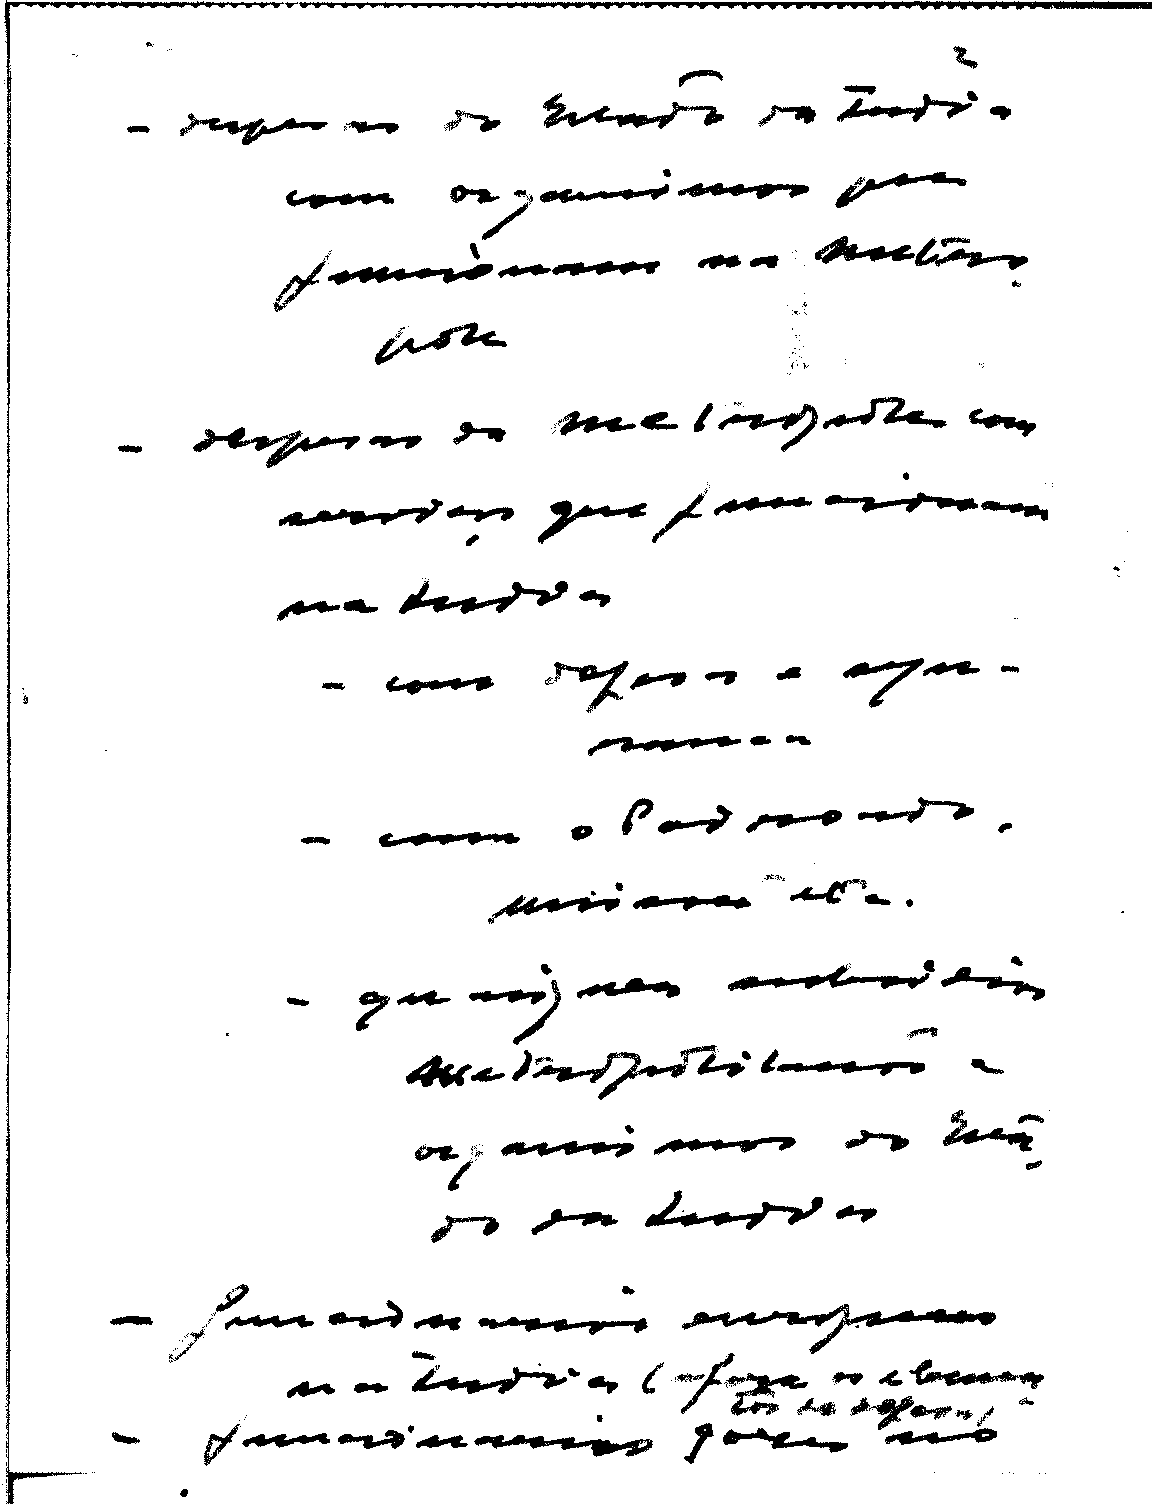 2
- despesas do Estado da India
com organismos que
funcionam na Metró-
pole
- despesas da Metrópole com
serviços que funcionam
na India
- com defesa e segu-
rança
- com o Padroado,
missões etc.
- quaisquer subsídios
metropolitanos a
organismos do Esta-
do da India
- funcionários europeus
na India (fora os elemen-
tos da defesa)
- funcionários goeses no